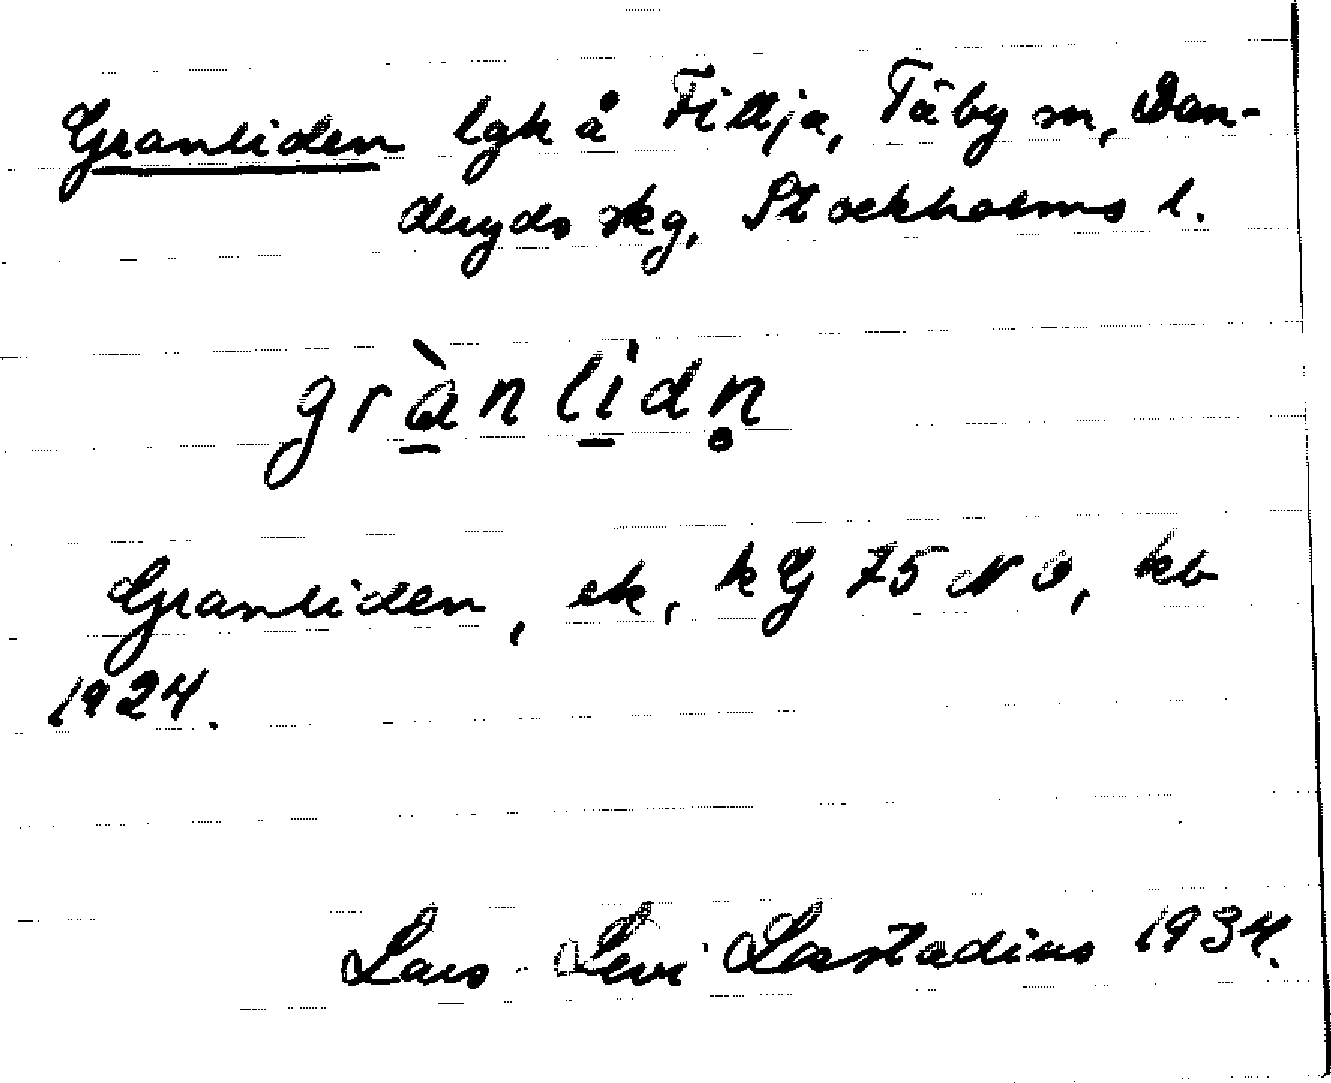 Granliden lgh å Fillja, Täby sn, Dan-
deryds skg, Stockholms l.
grànlidn̥
Granliden, ek, kG 75 NO, kb
1924.
Lars-Levi Læstadius 1934.